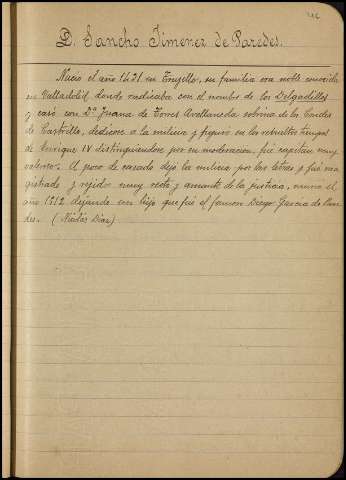 D. Sancho Jimenez de Paredes.
Nació el año 1421 en Trujillo, su familia era noble conocida
en Valladolid, donde radicaba con el nombre de los Delgadillos
y casó con Dª Juana de Torres Avellaneda sobrina de los Condes
de Castrillo, dedicose a la milicia y figuró en los revueltos tiempos
de Enrique IV distinguiendose por su moderación, fué capitan muy
valeroso. A poco de casado dejó la milicia por las letras y fué ma-
gistrado y regidor muy recto y amante de la justicia, murió el
año dejando un hijo que fué el famoso Diego Garcia de Pare-
des. (Nicolás Diaz)